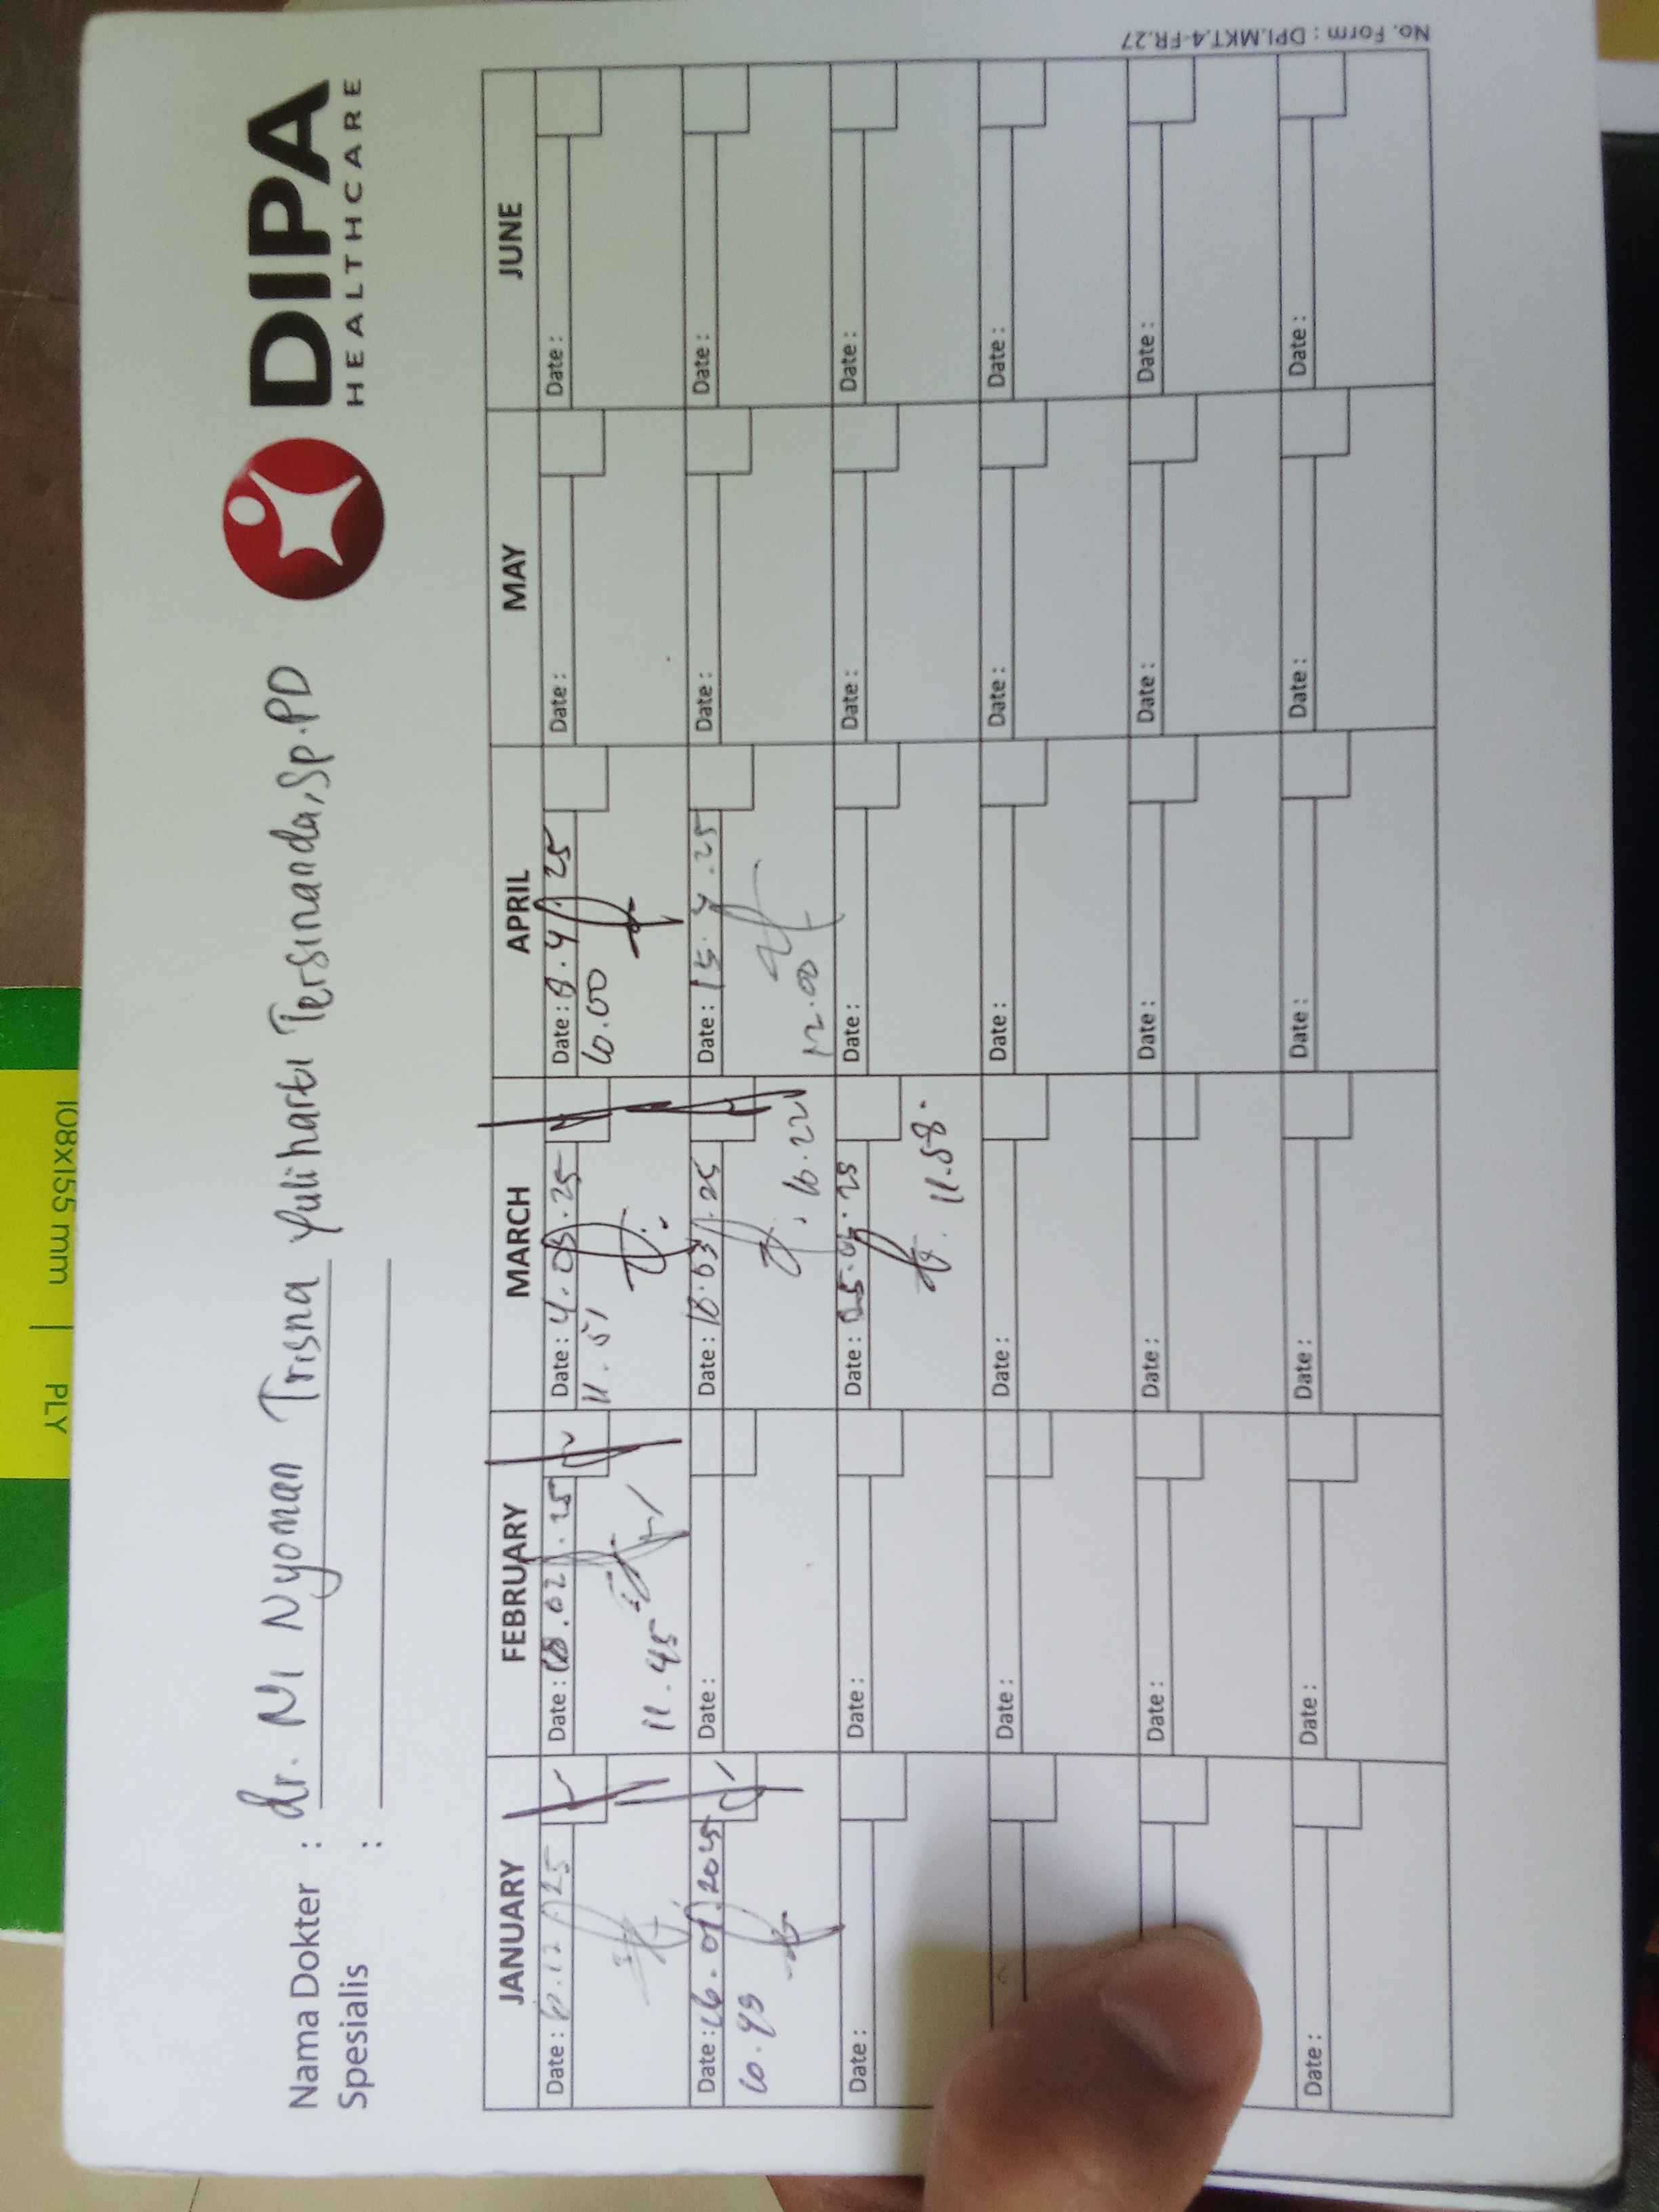 DIPA
HEALTHCARE
Nama Dokter : dr. Ni Nyoman Trisna Yuliharti Tersinanda, Sp.PD
Spesialis :
JANUARY FEBRUARY MARCH APRIL MAY JUNE
Date : Date : 18.02.25 Date : 4.03.25 Date : 8.4.25 Date : Date :
11.45 11.51 10.00
Date : 16.01.2025 Date : Date : 18.03.25 Date : 15.4.25 Date : Date :
10.49 16.22 12.00
Date : Date : Date : Date : Date : Date :
11.58.
Date : Date : Date : Date : Date :
Date : Date : Date : Date : Date :
Date : Date : Date : Date : Date : Date :
No. Form : DPI.MKT.4-FR.27
108x155 mm | PLY